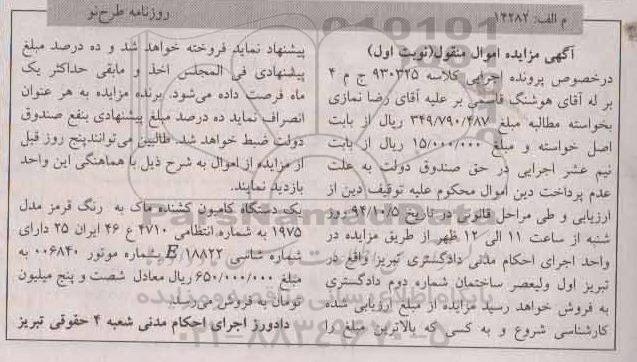 م الف: ۱۴۲۸۲
روزنامه طرح‌نو
آگهی مزایده اموال منقول(نوبت اول)
درخصوص پرونده اجرایی کلاسه ۹۳۰۳۲۵ ج م ۴
بر له آقای هوشنگ قاسمی بر علیه آقای رضا نمازی
بخواسته مطالبه مبلغ ۳۴۹/۷۹۰/۴۸۷ ریال از بابت
اصل خواسته و مبلغ ۱۵/۰۰۰/۰۰۰ ریال از بابت
نیم عشر اجرایی در حق صندوق دولت به علت
عدم پرداخت دین اموال محکوم علیه توقیف دین از
ارزیابی و طی مراحل قانونی در تاریخ ۹۴/۱۰/۵ روز
شنبه از ساعت ۱۱ الی ۱۲ ظهر از طریق مزایده در
واحد اجرای احکام مدنی دادگستری تبریز واقع در
تبریز اول ولیعصر ساختمان شماره دوم دادگستری
به فروش خواهد رسید مزایده از مبلغ ارزیابی شده
کارشناسی شروع و به کسی که بالاترین مبلغ را
پیشنهاد نماید فروخته خواهد شد و ده درصد مبلغ
پیشنهادی فی المجلس اخذ و مابقی حداکثر یک
ماه فرصت داده می‌شود. برنده مزایده به هر عنوان
انصراف نماید ده درصد مبلغ پیشنهادی بنفع صندوق
دولت ضبط خواهد شد. طالبین می‌توانندپنج روز قبل
از مزایده از اموال به شرح ذیل با هماهنگی این واحد
بازدید نمایند.
یک دستگاه کامیون کشنده ماک به رنگ قرمز مدل
۱۹۷۵ به شماره انتظامی ۴۷۱۰ ع ۴۶ ایران ۲۵ دارای
شماره شاسی E/۱۸۸۲۲ بشماره موتور ۰۰۶۸۴۰ به
مبلغ ۶۵۰/۰۰۰/۰۰۰ ریال معادل شصت و پنج میلیون
تومان به فروش می‌رسد.
دادورز اجرای احکام مدنی شعبه ۴ حقوقی تبریز